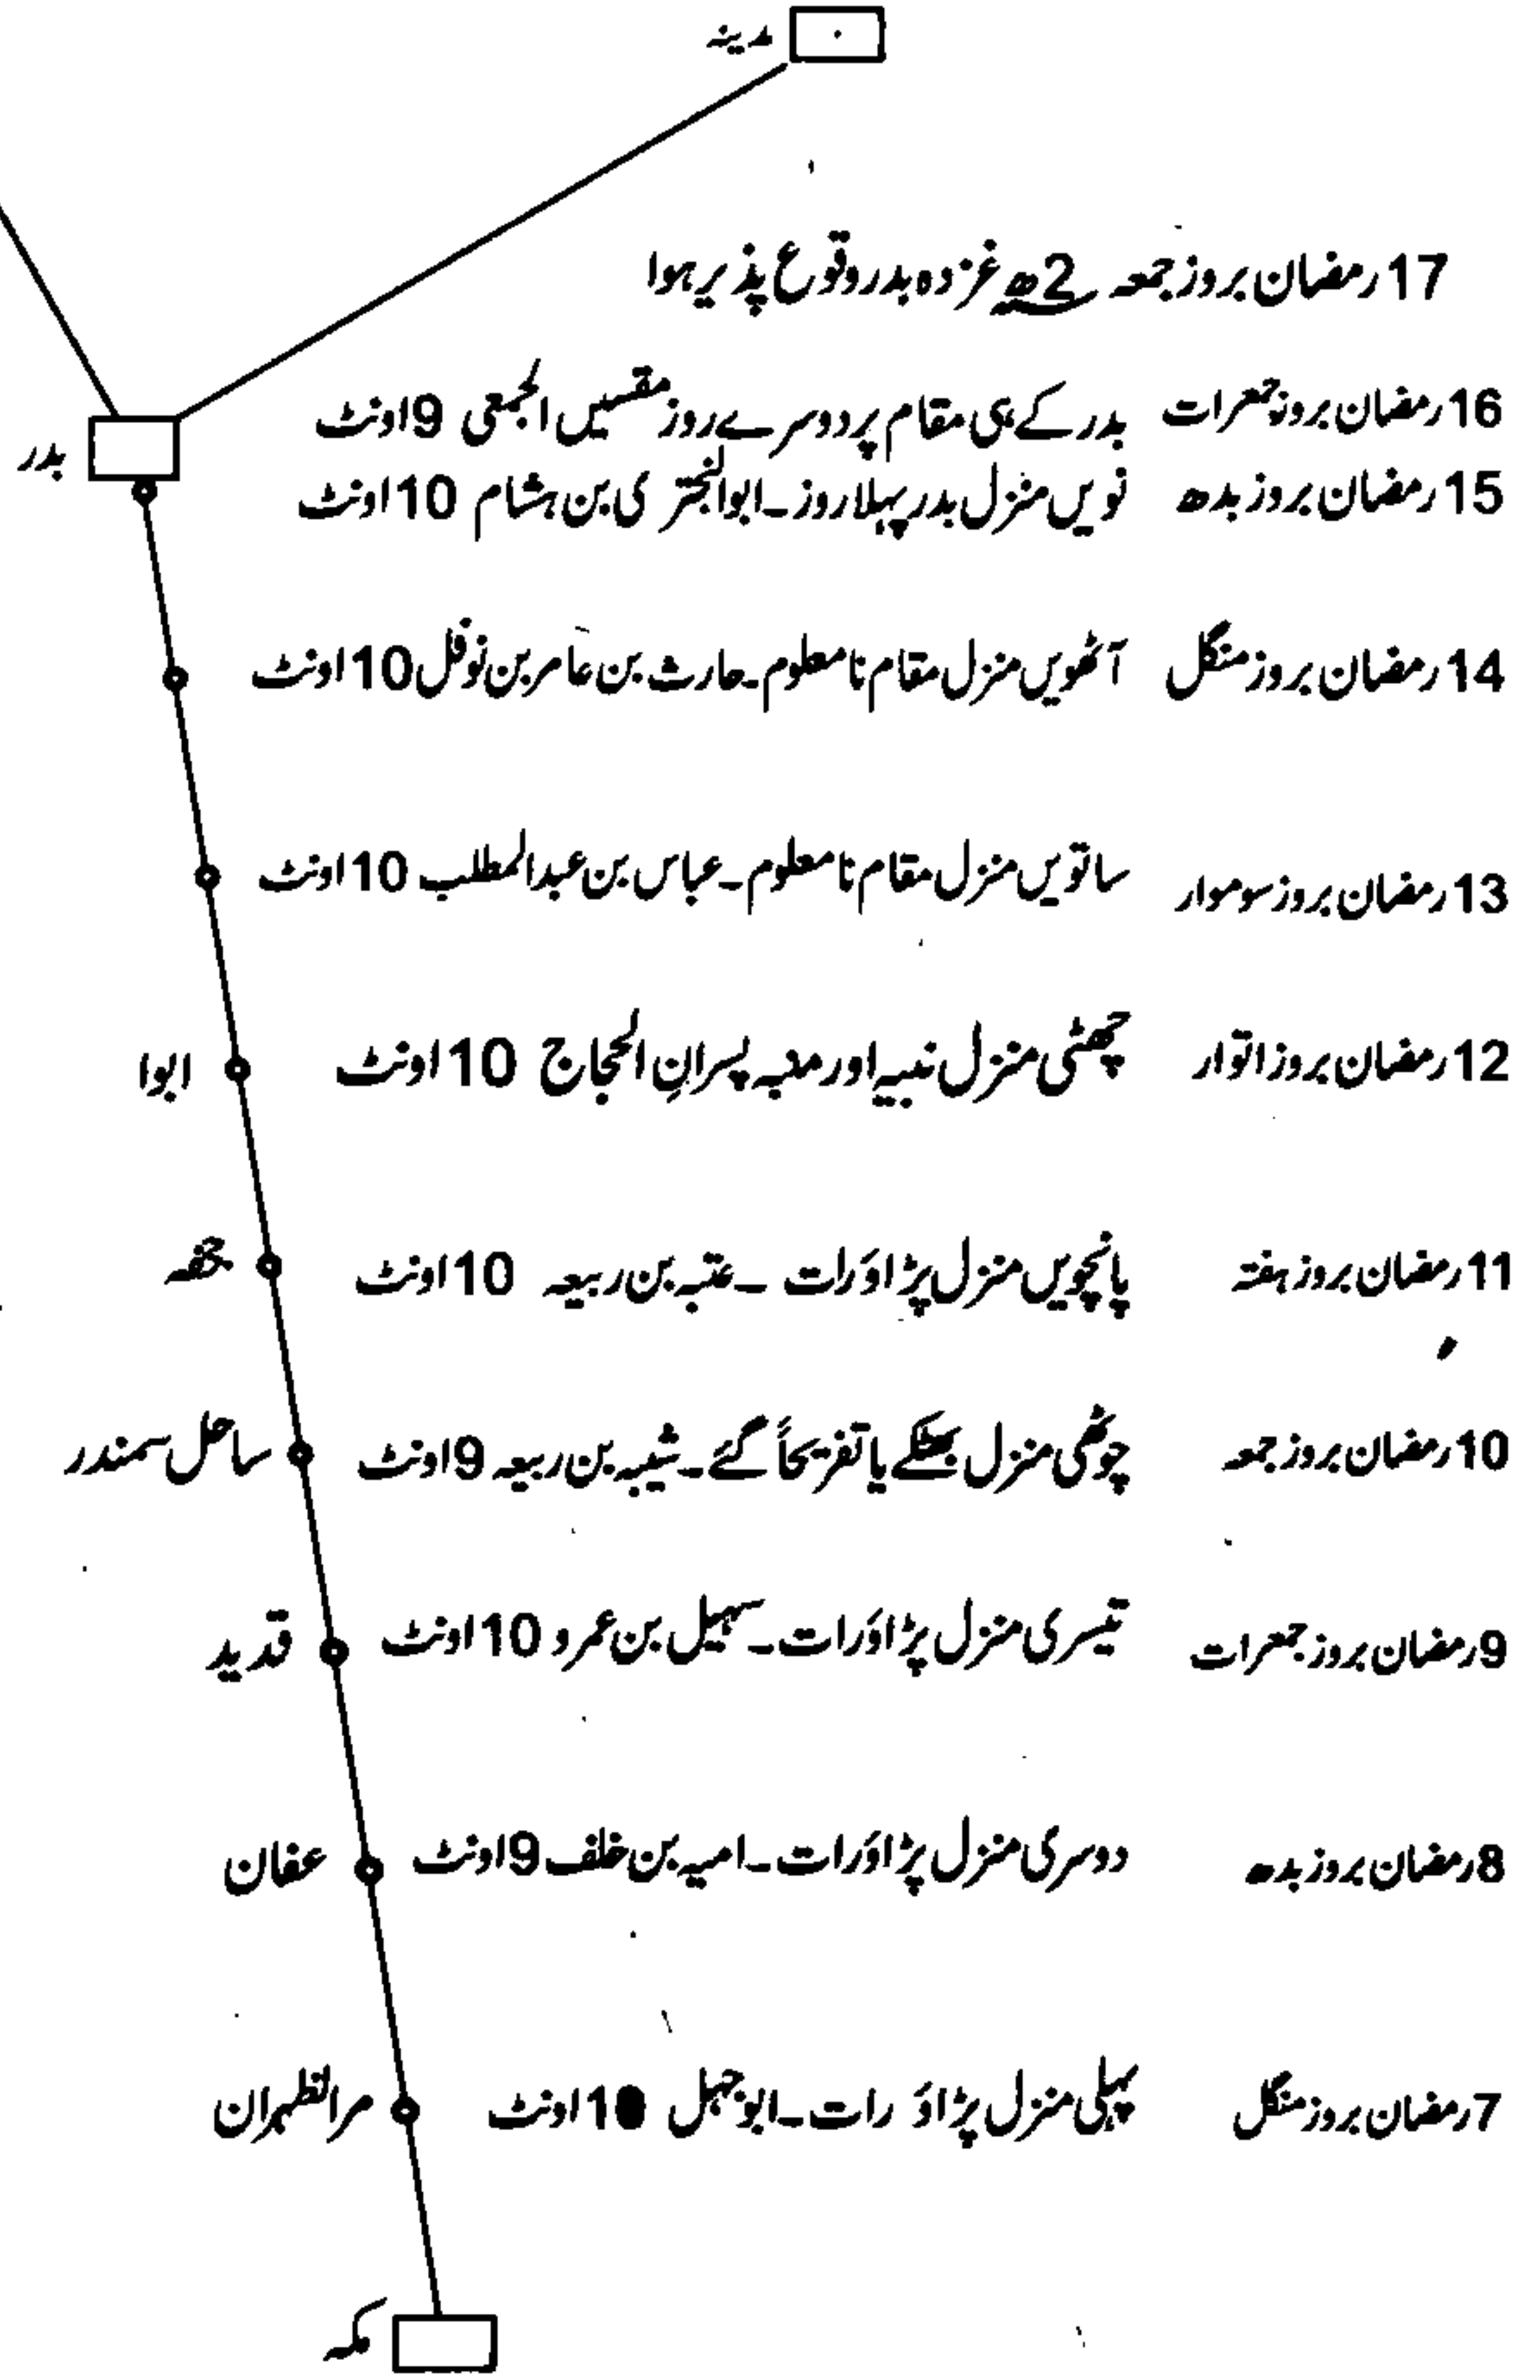 مدینہ
17 رمضان بروز جمعہ 2ھ غزوہ بدر وقوع پذیر ہوا
16 رمضان بروز جمعرات بدر کے ہی مقام پر دوسرے روز مقسیں الجمعی 9 اونٹ
بدر
15 رمضان بروز بدھ نویں منزل بدر پہلا روز ۔ ابوالبختری بن ہشام 10 اونٹ
14 رمضان بروز منگل آٹھویں منزل مقام نامعلوم ۔ حارث بن عامر بن نوفل 10 اونٹ
13 رمضان بروز سوموار ساتویں منزل مقام نامعلوم ۔ عباس بن عبدالمطلب 10 اونٹ
12 رمضان بروز اتوار چھٹی منزل نبیہ اور منبہ پسرانِ الحجاج 10 اونٹ ابوا
11 رمضان بروز ہفتہ پانچویں منزل پڑاؤ رات ۔ عتبہ بن ربیعہ 10 اونٹ جحفہ
10 رمضان بروز جمعہ چوتھی منزل بھٹکے یا تفریحاً گئے ۔ شیبہ بن ربیعہ 9 اونٹ ساحل سمندر
9 رمضان بروز جمعرات تیسری منزل پڑاؤ رات ۔ سہیل بن عمرو 10 اونٹ قدید
8 رمضان بروز بدھ دوسری منزل پڑاؤ رات ۔ امیہ بن خلف 9 اونٹ عفان
7 رمضان بروز منگل پہلی منزل پڑاؤ رات ۔ ابوجہل 10 اونٹ مرالظہران
مکہ